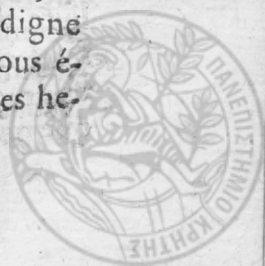 digne
ous é-
es he-
ΠΑΝΕΠΙΣΤΗΜΙΟ ΚΡΗΤΗΣ